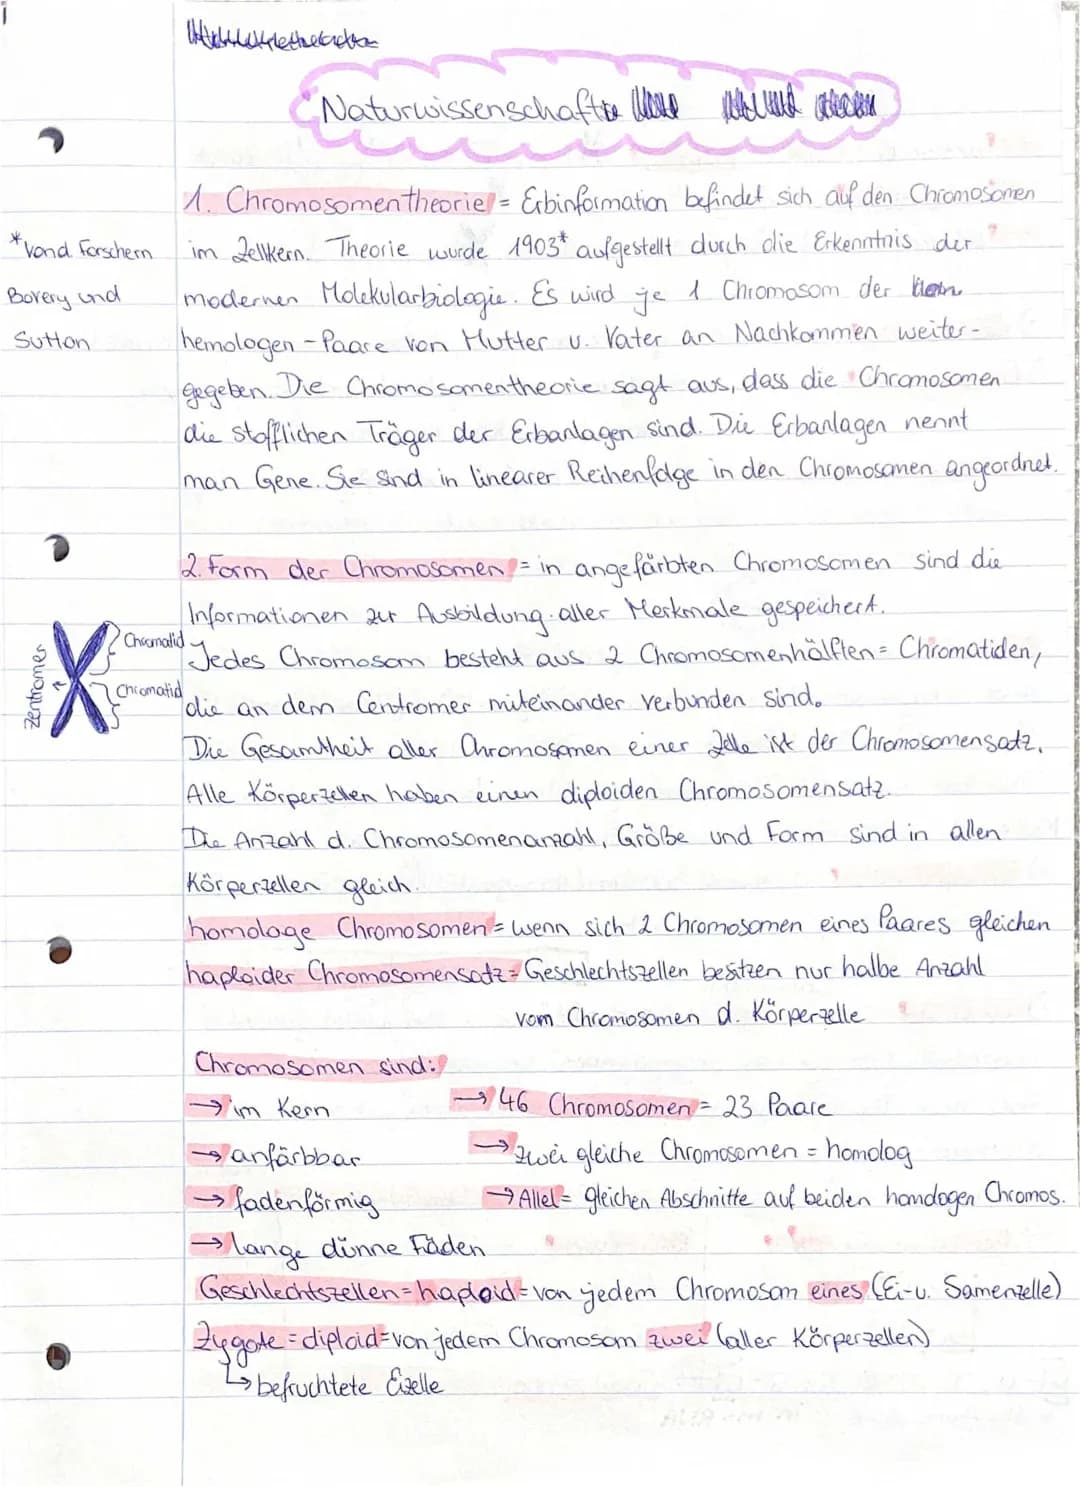 Naturwissenschafte
1. Chromosomentheorie = Erbinformation befindet sich auf den Chromosomen
*vond Forschern
Bovery und
Sutton
im Zellkern. Theorie wurde 1903* aufgestellt durch die Erkenntnis der
modernen Molekularbiologie. Es wird je 1 Chromosom der
hemologen-Paare von Mutter u. Vater an Nachkommen weiter-
gegeben. Die Chromosomentheorie sagt aus, dass die Chromosomen
die stofflichen Träger der Erbanlagen sind. Die Erbanlagen nennt
man Gene. Sie sind in linearer Reihenfolge in den Chromosomen angeordnet.
2. Form der Chromosomen = in angefärbten Chromosomen sind die
Informationen zur Ausbildung aller Merkmale gespeichert.
Zentromer
Chromatid
Chromatid
Jedes Chromosom besteht aus 2 Chromosomenhälften = Chromatiden,
die an dem Centromer miteinander verbunden sind.
Die Gesamtheit aller Chromosomen einer Zelle ist der Chromosomensatz.
Alle Körperzellen haben einen diploiden Chromosomensatz.
Die Anzahl d. Chromosomenanzahl, Größe und Form sind in allen
Körperzellen gleich.
homologe Chromosomen = wenn sich 2 Chromosomen eines Paares gleichen
haploider Chromosomensatz = Geschlechtszellen besitzen nur halbe Anzahl
vom Chromosomen d. Körperzelle
Chromosomen sind:
→ im Kern
→ anfärbbar
→ fadenförmig
→ lange dünne Fäden
→ 46 Chromosomen = 23 Paare
→ zwei gleiche Chromosomen = homolog
→ Allel = gleichen Abschnitte auf beiden homologen Chromos.
Geschlechtszellen = haploid = von jedem Chromosom eines (Ei-u. Samenzelle)
Zygote = diploid = von jedem Chromosom zwei (aller Körperzellen)
↳ befruchtete Eizelle